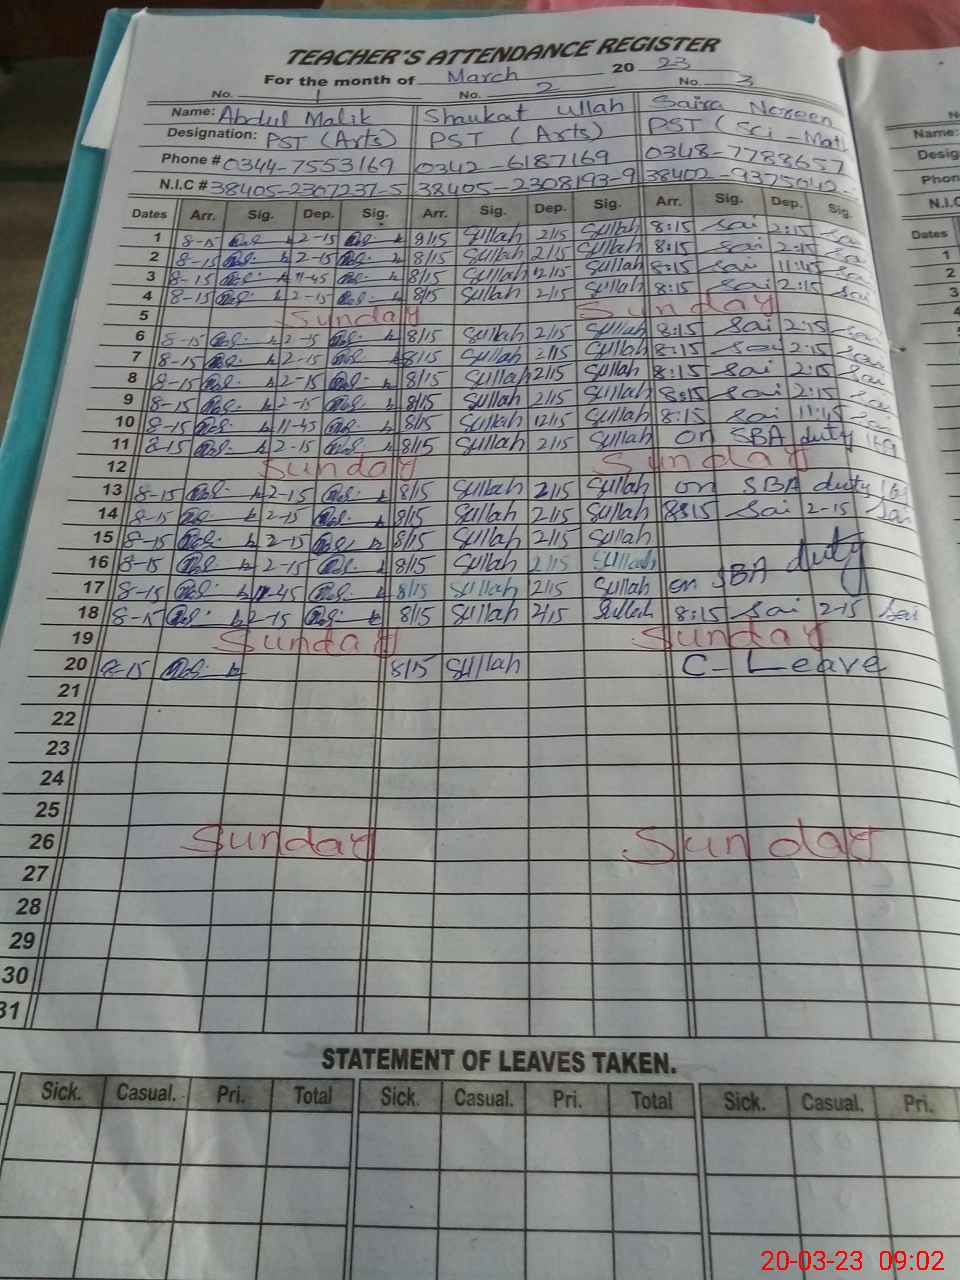 TEACHER'S ATTENDANCE REGISTER
For the month of March 2023
No. 1 No. 2 No. 3
Name: Abdul Malik Shaukat Ullah Saira Noreen
Designation: PST (Arts) PST (Arts) PST (Sci-Mat
Phone # 0344-7553169 0342-6187169 0348-7788657
N.I.C # 38405-2307237-5 38405-2308193-9 38402-9375042-
Dates Arr. Sig. Dep. Sig. Arr. Sig. Dep. Sig. Arr. Sig. Dep. Sig.
1 8-15 2-15 8/15 Sullah 2/15 Sullah 8:15 Sai 2:15 Sai
2 8-15 2-15 8/15 Sullah 2/15 Sullah 8:15 Sai 2:15 Sai
3 8-15 11-45 8/15 Sullah 12/15 Sullah 8:15 Sai 11:45 Sai
4 8-15 2-15 8/15 Sullah 2/15 Sullah 8:15 Sai 2:15 Sai
5 Sunday Sunday
6 8-15 2-15 8/15 Sullah 2/15 Sullah 8:15 Sai 2:15 Sai
7 8-15 2-15 8/15 Sullah 2/15 Sullah 8:15 Sai 2:15 Sai
8 8-15 2-15 8/15 Sullah 2/15 Sullah 8:15 Sai 2:15 Sai
9 8-15 2-15 8/15 Sullah 2/15 Sullah 8:15 Sai 2:15 Sai
10 8-15 11-45 8/15 Sullah 12/15 Sullah 8:15 Sai 11:45 Sai
11 8-15 2-15 8/15 Sullah 2/15 Sullah on SBA duty
12 Sunday Sunday
13 8-15 2-15 8/15 Sullah 2/15 Sullah on SBA duty
14 8-15 2-15 8/15 Sullah 2/15 Sullah 8:15 Sai 2-15 Sai
15 8-15 2-15 8/15 Sullah 2/15 Sullah
16 8-15 2-15 8/15 Sullah 2/15 Sullah on SBA duty
17 8-15 11-45 8/15 Sullah 12/15 Sullah
18 8-15 2-15 8/15 Sullah 2/15 Sullah 8:15 Sai 2-15 Sai
19 Sunday Sunday
20 8-15 8/15 Sullah C-Leave
21
22
23
24
25
26 Sunday Sunday
27
28
29
30
31
STATEMENT OF LEAVES TAKEN.
Sick. Casual. Pri. Total Sick. Casual. Pri. Total Sick. Casual. Pri.
Name:
Desig
Phon
N.I.C
Dates
1
2
3
20-03-23 09:02